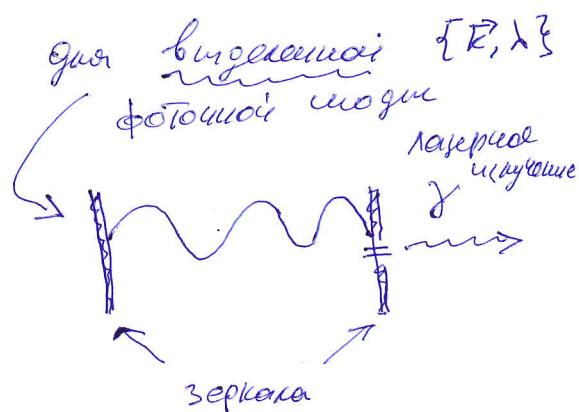 для выделенной {k⃗, λ}
фотонной моды
лазерное
излучение
γ
зеркала